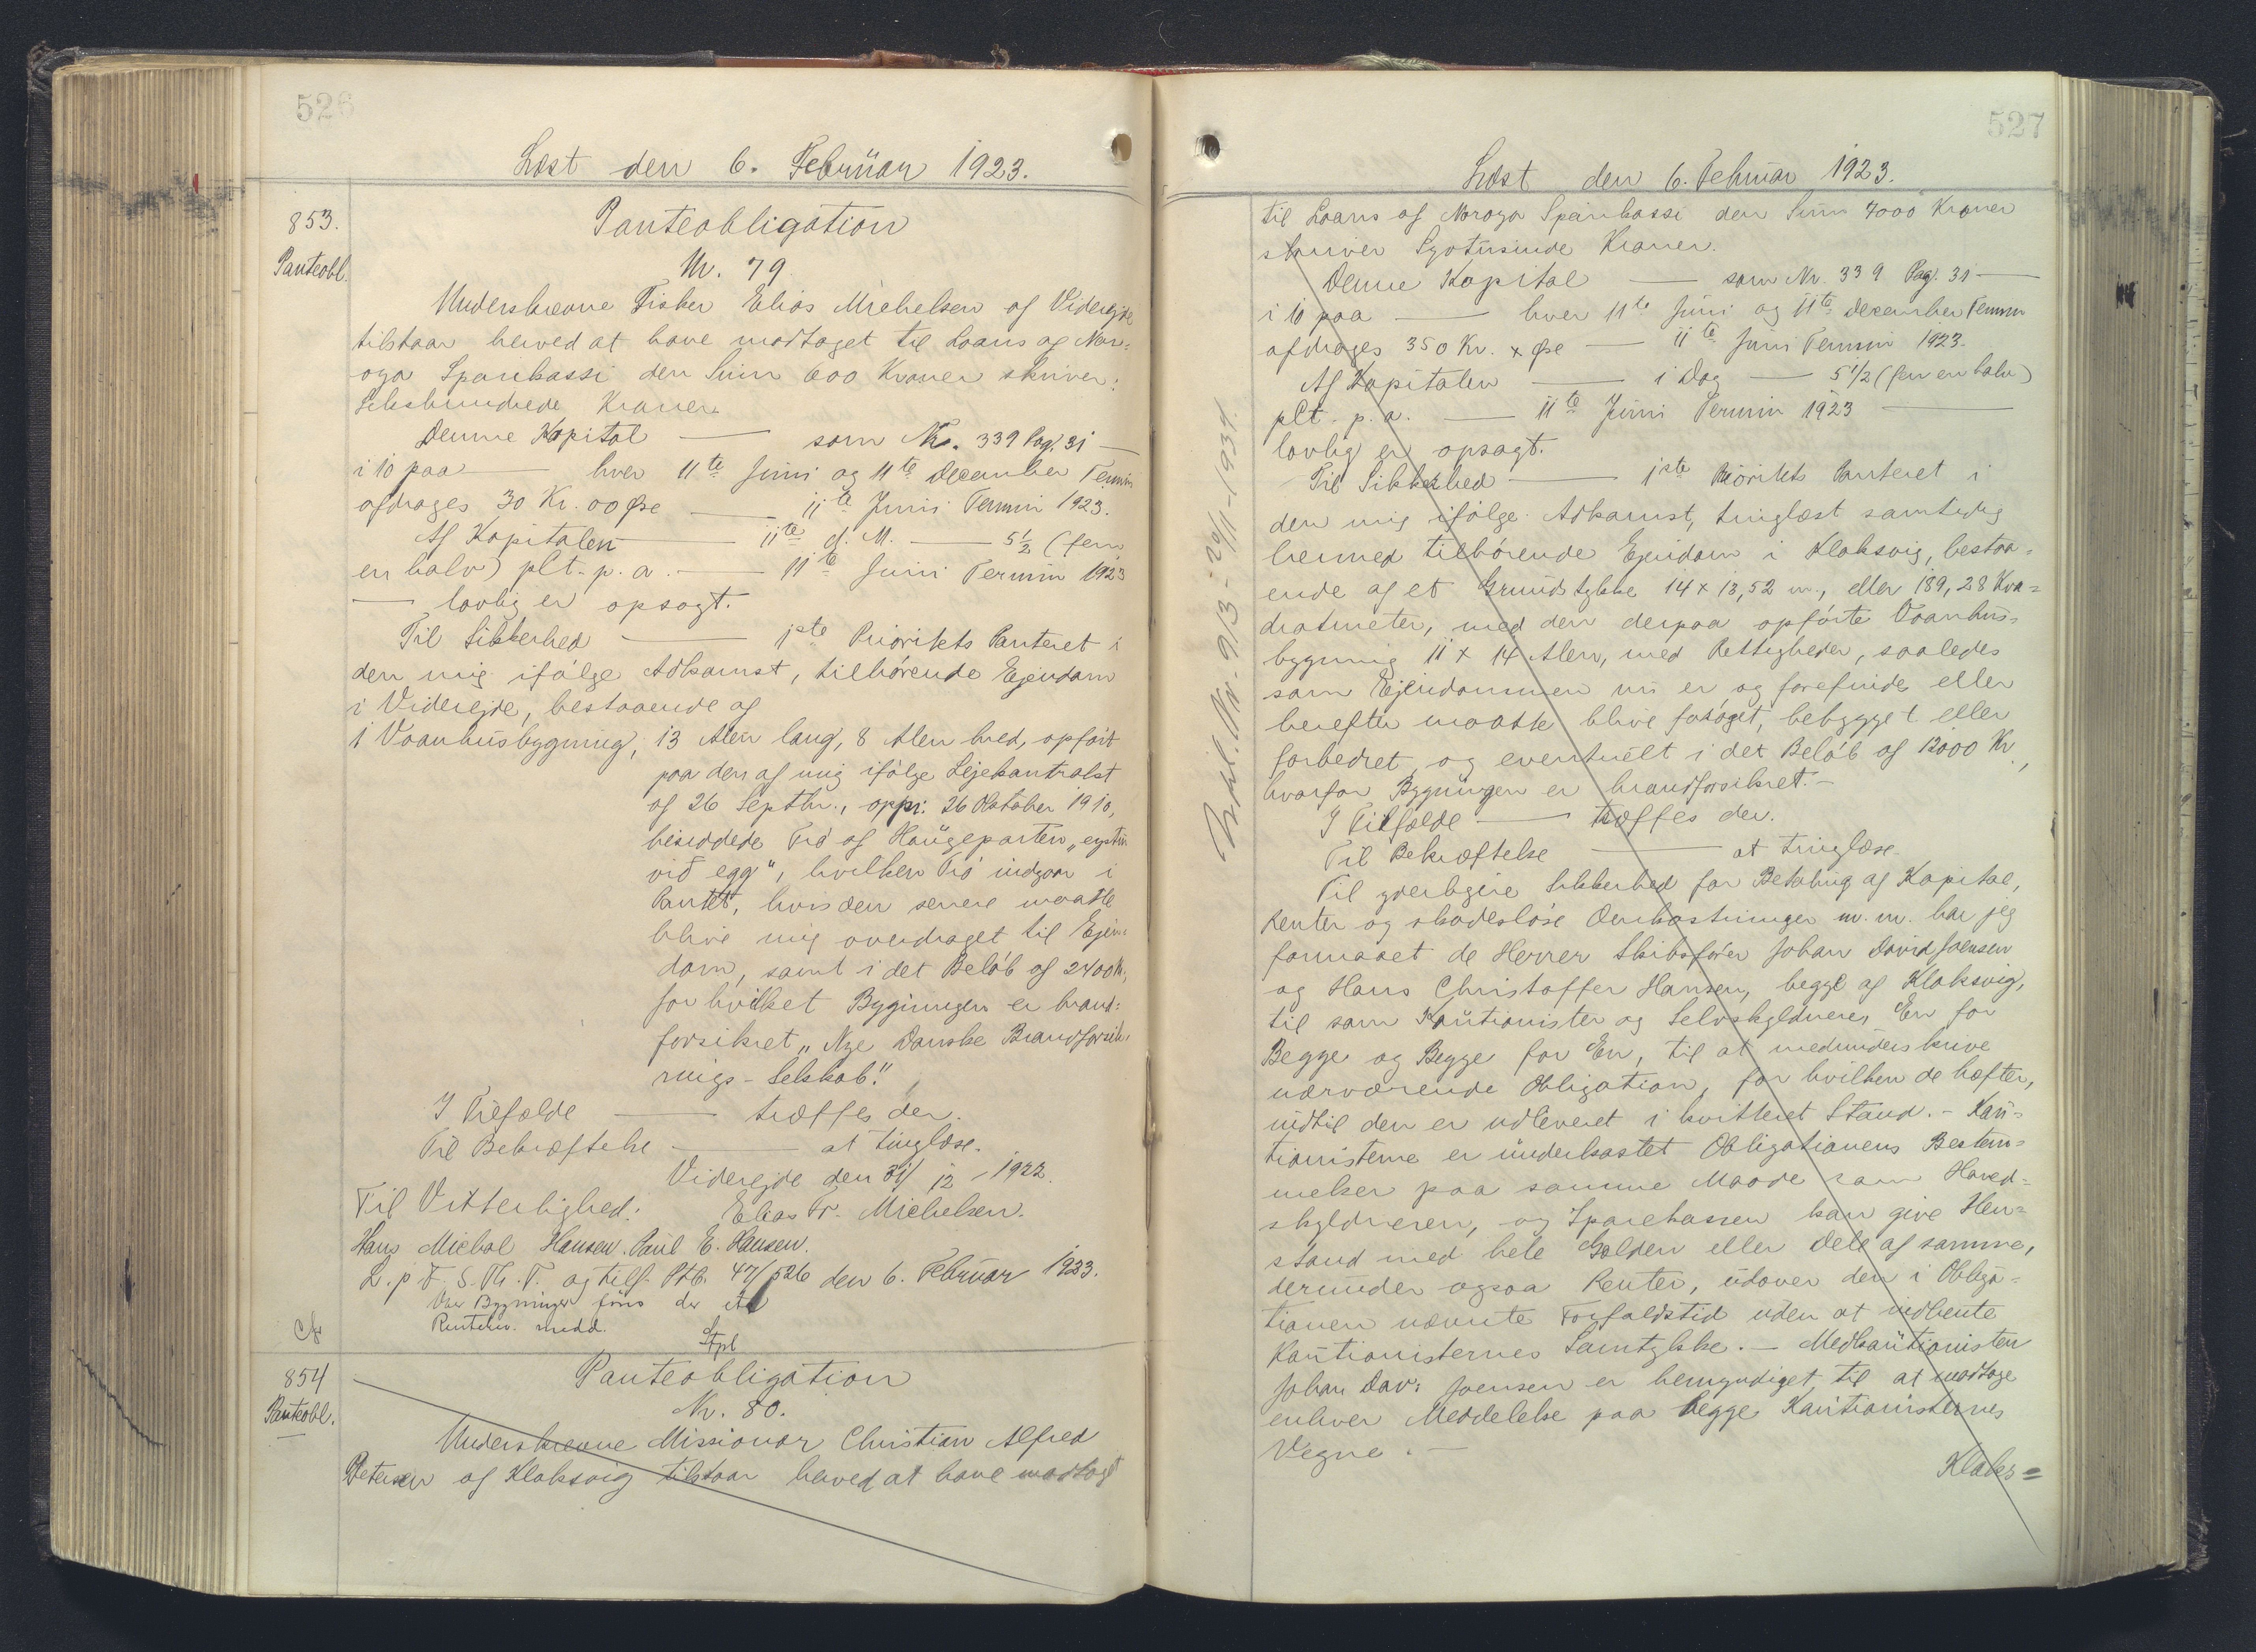 526
Læst den 6. Februar 1923.
853.
Panteobl.
Panteobligation
Nr. 79
Underskrevne Fisker Elias Michelsen af Viderejde
tilstaar herved at have modtaget til Laans af Nor-
oya Sparikassi den Sum 600 Kroner skriver:
Sekshundrede Kroner.
Denne Kapital — som No. 339 Pag. 31 —
i 10 paa — hver 11te Juni og 11te December Termin
afdrages 30 Kr. 00 Øre — 11te Juni Termin 1923.
Af Kapitalen — 11te d. M. — 5½ (fem
en halv) pCt. p. a. — 11te Juni Termin 1923
— lovlig er opsagt.
Til Sikkerhed — 1ste Prioritets Panteret i
den mig ifølge Adkomst, tilhørende Ejendom
i Viderejde, bestaaende af
1 Vaanhusbygning, 13 Alen lang, 8 Alen bred, opført
paa den af mig ifølge Lejekontrakt
af 26 Septbr., 26 Oktober 1910,
besiddede Trø af Haugeparten „eystur
við egg", hvilken Trø indgaar i
Pantet, hvis den senere maatte
blive mig overdraget til Ejen-
dom, samt i det Beløb af 2400 Kr.,
for hvilket Bygningen er brand-
forsikret „Nye Danske Brandforsik-
rings-Selskab."
I Tilfælde — træffes der.
Til Bekræftelse — at tinglæse.
Viderejde den 31/12 - 1922.
Til Vitterlighed: Elias Fr. Michelsen.
Hans Michal Hansen. Paul E. Hansen.
L. p F. S. Th. T. og tilf. Ptb. 47/526 den 6. Februar 1923.
Over Bygninger føres der
medd.
854
Panteobl.
Panteobligation
Nr. 80.
Underskrevne Missionær Christian Alfred
Petersen af Klaksvig tilstaar herved at have modtaget
527
Læst den 6. Februar 1923.
til Laans af Noroya Sparikassi den Sum 7000 Kroner
skriver Syvtusinde Kroner.
Denne Kapital — som Nr. 339 Pag. 31 —
i 10 paa — hver 11te Juni og 11te December Termin
afdrages 350 Kr. x Øre — 11te Juni Termin 1923.
Af Kapitalen — i Dag — 5 1/2 (fem en halv)
pCt. p. a. — 11te Juni Termin 1923 —
lovlig er opsagt.
Til Sikkerhed — 1ste Prioritets Panteret i
den mig ifølge Adkomst, tinglæst samtidig
hermed tilhørende Ejendom i Klaksvig, bestaa-
ende af et Grundstykke 14 x 13,52 m., eller 189,28 Kva-
dratmeter, med den derpaa opførte Vaanhus-
bygning 11 x 14 Alen, med Rettigheder, saaledes
som Ejendommen nu er og forefindes eller
herefter maatte blive forøget, bebygget eller
forbedret og eventuelt i det Beløb af 12000 Kr.,
hvorfor Bygningen er brandforsikret. —
I Tilfælde — træffes der.
Til Bekræftelse — at tinglæse.
Til yderligere Sikkerhed for Betaling af Kapital,
Renter og skadesløse Omkostninger m. m. har jeg
formaaet de Herrer Skibsfører Johan David Joensen
og Hans Christoffer Hansen, begge af Klaksvig,
til som Kautionister og Selvskyldnere, En for
Begge og Begge for En, til at medunderskrive
nærværende Obligation, for hvilken de hæfter,
indtil den er udleveret i kvitteret Stand. — Kau-
tionisterne er underkastet Obligationens Bestem-
melser paa samme Maade som Hoved-
skyldneren, og Sparekassen kan give Hen-
stand med hele Gælden eller Dele af samme,
derunder ogsaa Renter, udover den i Obliga-
tionen nævnte Forfaldstid uden at indhente
Kautionisternes Samtykke. — Medkautionisten
Johan Dav: Joensen er bemyndiget til at modtage
enhver Meddelelse paa begge Kautionisternes
Vegne. —
Klaks=
Nr. 913 - 20/11 - 1934.